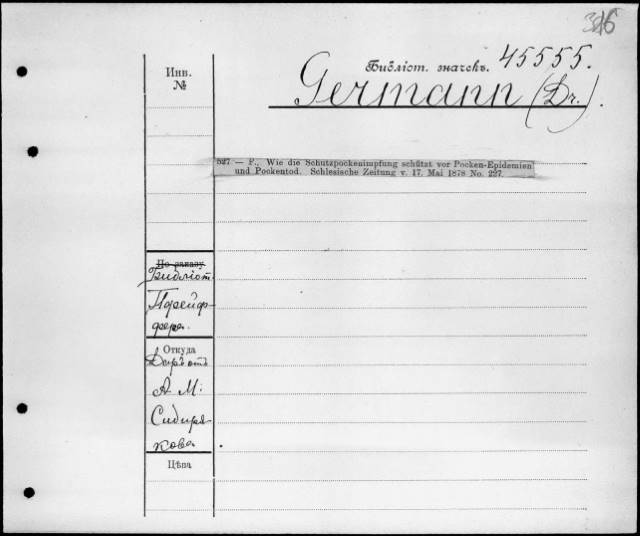 326
Инв.
№
Библіот. значекъ. 45555.
Germann (Dr.).
527 — F., Wie die Schutzpockenimpfung schützt vor Pocken-Epidemien
und Pockentod. Schlesische Zeitung v. 17. Mai 1878 No. 227.
По заказу
Библіот.
Пфейф-
фера.
Откуда
Даръ отъ
А. М.
Сибиря-
кова.
Цѣна